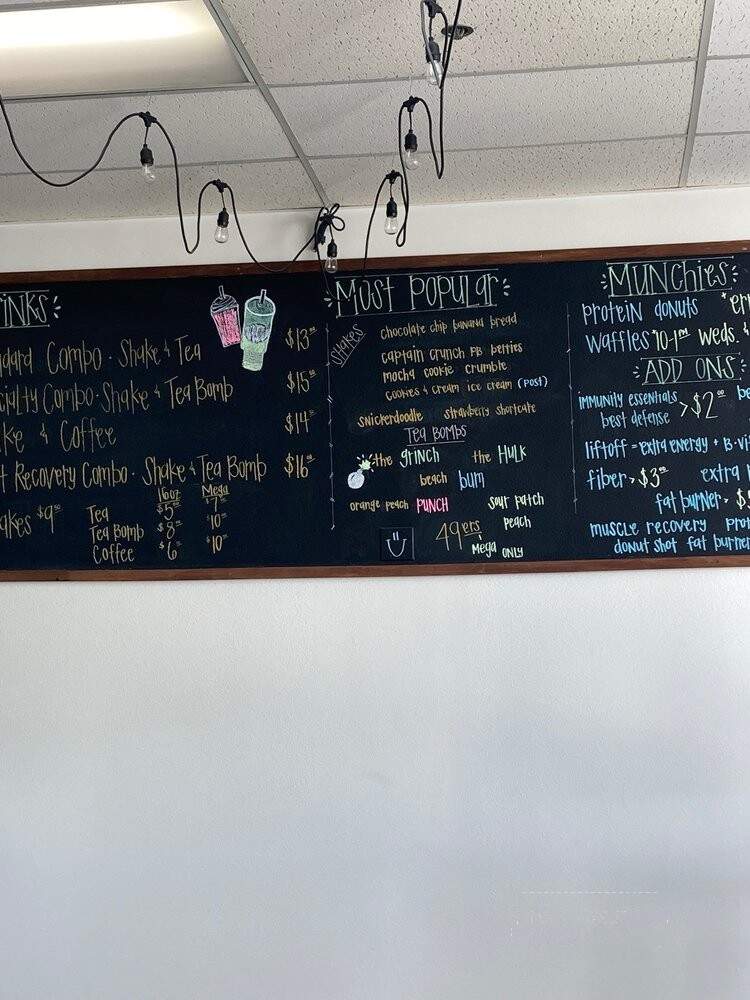 INKS
dard Combo · Shake & Tea $13
cialty Combo · Shake & Tea Bomb $15
ke & Coffee $14
t Recovery Combo · Shake & Tea Bomb $16
16oz Mega
akes $9 Tea $5 $7
Tea Bomb $8 $10
Coffee $6 $10
MOST POPULAR
SHAKES
chocolate chip banana bread
captain crunch PB betties
mocha cookie crumble
cookies & cream ice cream (POST)
snickerdoodle strawberry shortcake
TEA BOMBS
the grinch the HULK
beach bum
orange peach PUNCH sour patch
peach
49ers
mega ONLY
MUNCHIES
protein donuts
waffles 10-1pm weds.
ADD ONS
immunity essentials
best defense > $2
liftoff = extra energy + B-vi
fiber > $3 extra
fat burner > $
muscle recovery prot
donut shot fat burner